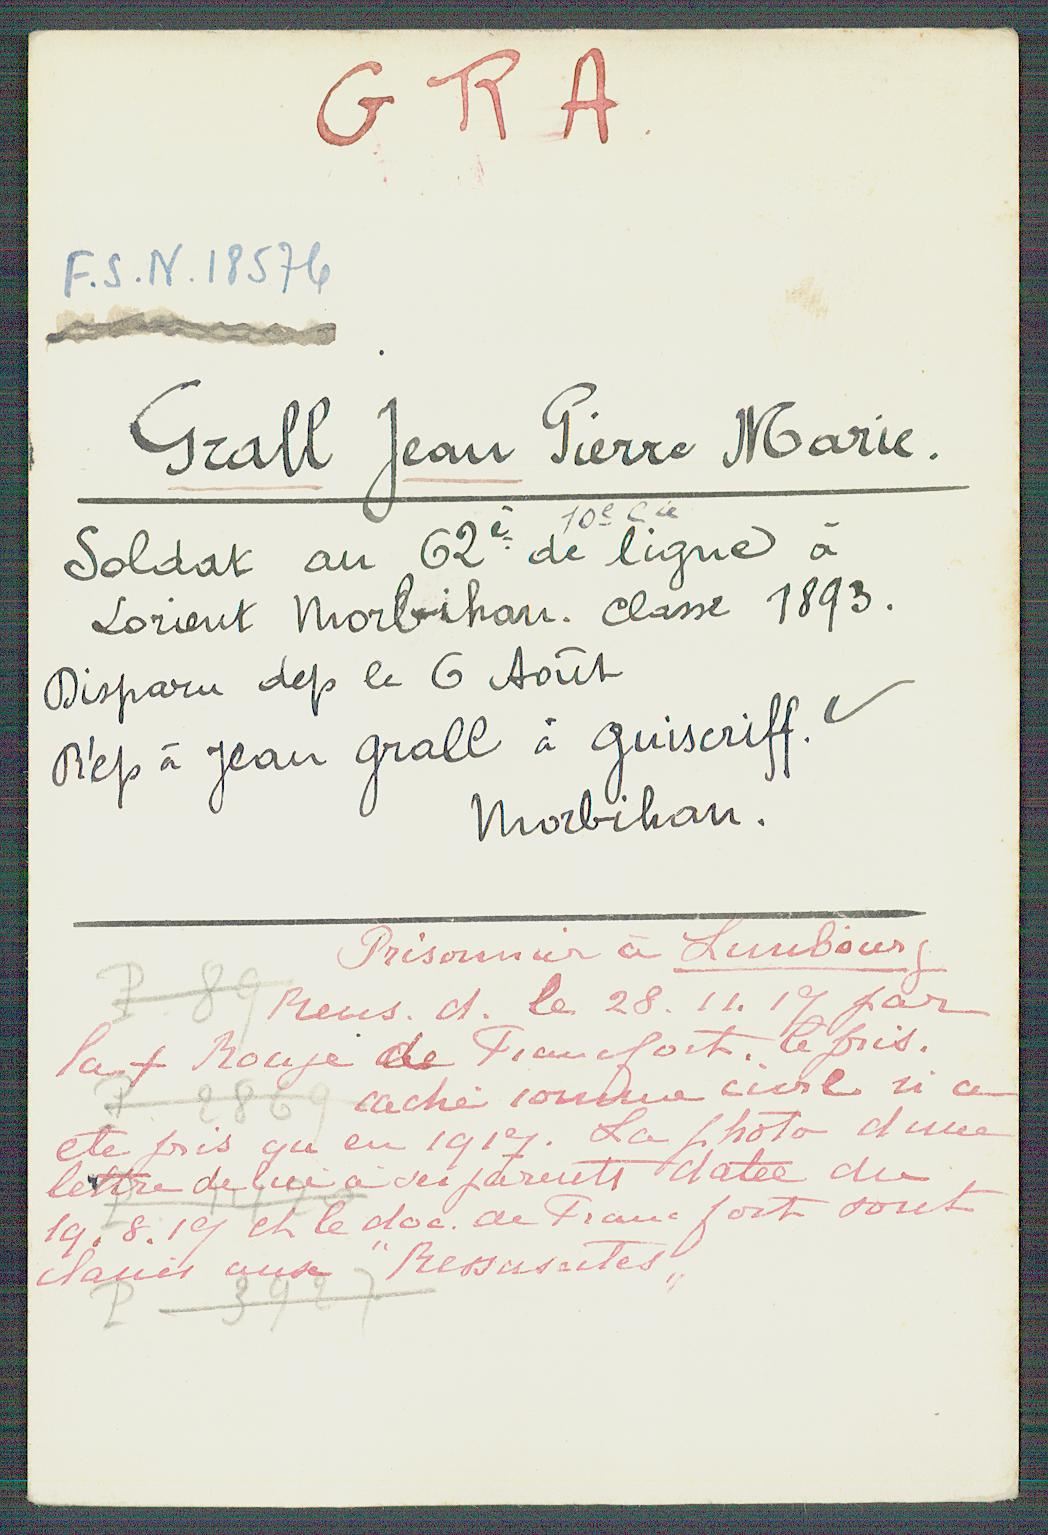 G R A.
F.S.N. 18576
Grall Jean Pierre Marie.
10e Cie
Soldat au 62è de ligne à
Lorient Morbihan. Classe 1893.
Disparu dep le 6 Août
Rép à Jean Grall à Guiscriff.
Morbihan.
Prisonnier à Limbourg
P. 89
Rens. d. le 28.11.17 par
la + Rouge de Francfort. le pris.
P. 2869
caché comme civil n'a
ete pris qu en 1917. La photo d une
lettre de lui à ses parents datee du
19.8.17 et le doc. de Francfort sont
classés aux "Ressuscités"
P 3927